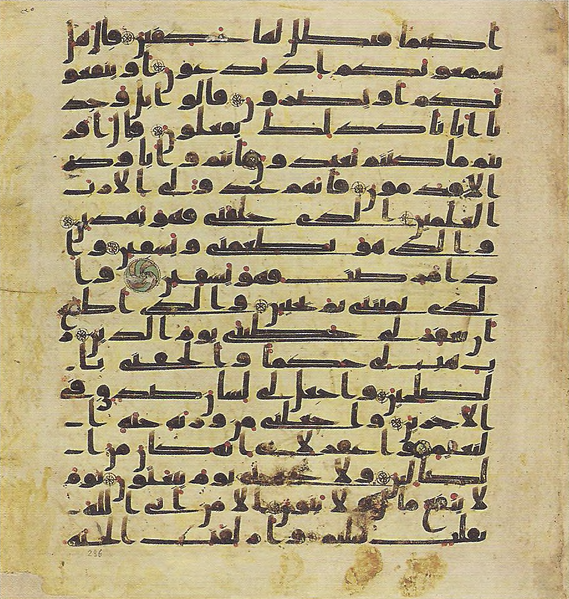 اصناما فنظل لها عكفين قال هل
يسمعونكم اذ تدعون او ينفعو
نكم او يضرون قالوا بل وجد
نا ابانا كذلك يفعلون قال افر
يتم ما كنتم تعبدون انتم واباوكم
الاقدمون فانهم عدو لي الا رب
العلمين الذي خلقني فهو يهدين
والذي هو يطعمني ويسقين وا
ذا مرضت فهو يشفين وا
لذي يميتني ثم يحيين والذي اطمع
ان يغفر لي خطيتي يوم الدين ر
ب هب لي حكما والحقني با
لصلحين واجعل لي لسان صدق في
الاخرين واجعلني من ورثة جنة ا
لنعيم واغفر لابي انه كان من ا
لضالين ولا تخزني يوم يبعثون يوم
لا ينفع مال ولا بنون الا من اتى الله
بقلب سليم وازلفت الجنة